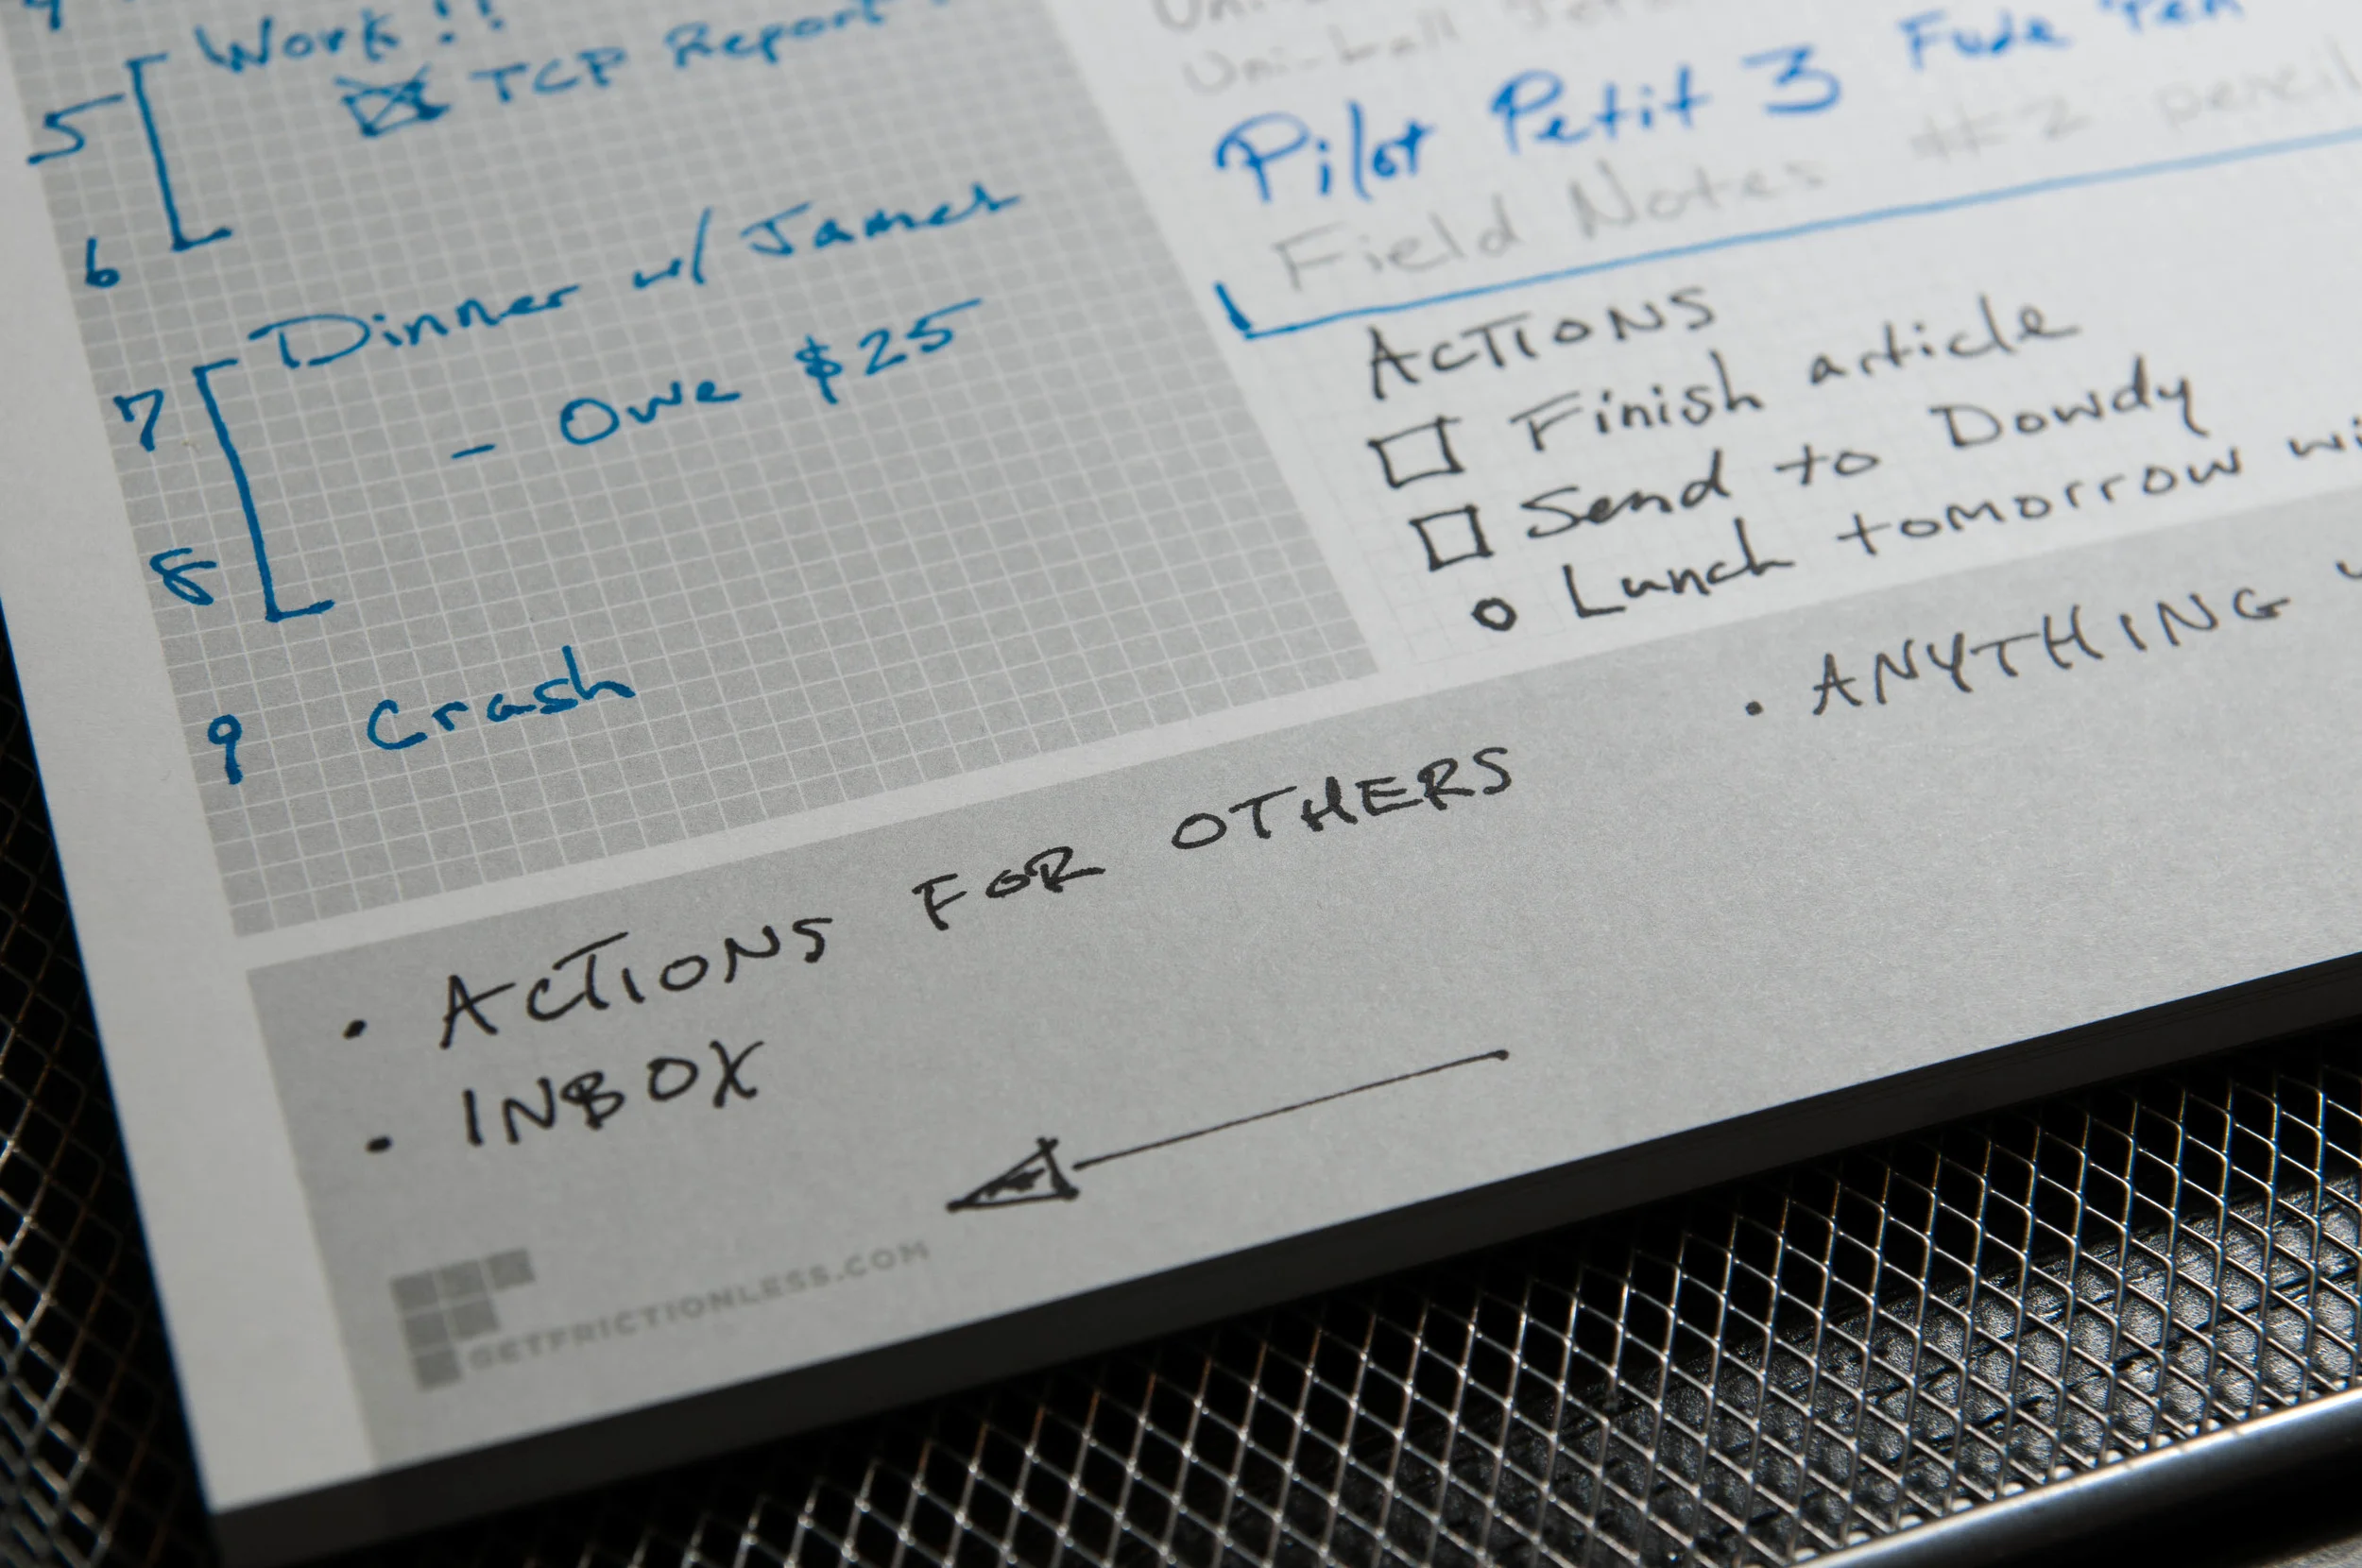 Work!!
TCP Report
5
6
Dinner w/ James
7
- Owe $25
8
9 Crash
Uni-ball
Pilot Petit 3 Fude Pen
Field Notes #2 pencil
ACTIONS
Finish article
Send to Dowdy
Lunch tomorrow
• ANYTHING
• ACTIONS FOR OTHERS
• INBOX
GETFRICTIONLESS.COM